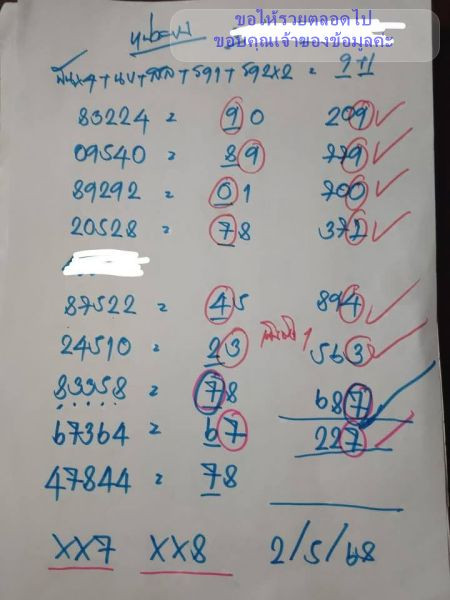 ขอให้รวยตลอดไป
ขอบคุณเจ้าของข้อมูลค่ะ
พันx4+นบ+สิล+ร91+ร92x2 = 9+1
83224 = 90 209
09540 = 89 779
89292 = 01 700
20528 = 78 371
87522 = 45 894
24510 = 23 563
83358 = 78 687
67364 = 67 227
47844 = 78
XX7 XX8 2/5/68